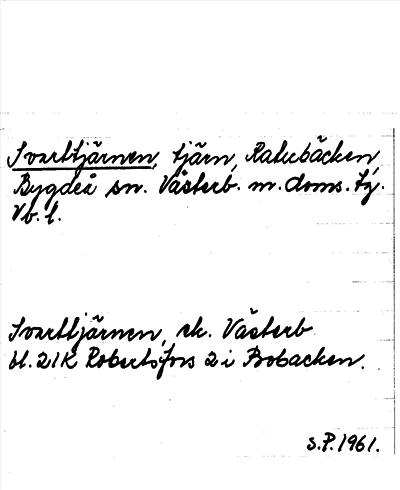 Svarttjärnen, tjärn, Ratubäcken,
Bygdeå sn. Västerb. m. doms. tg.
Vb. l.
Svarttjärnen, ek. Västerb
bl. 21K Robertsfors 2 i Bobacken.
S.P. 1961.